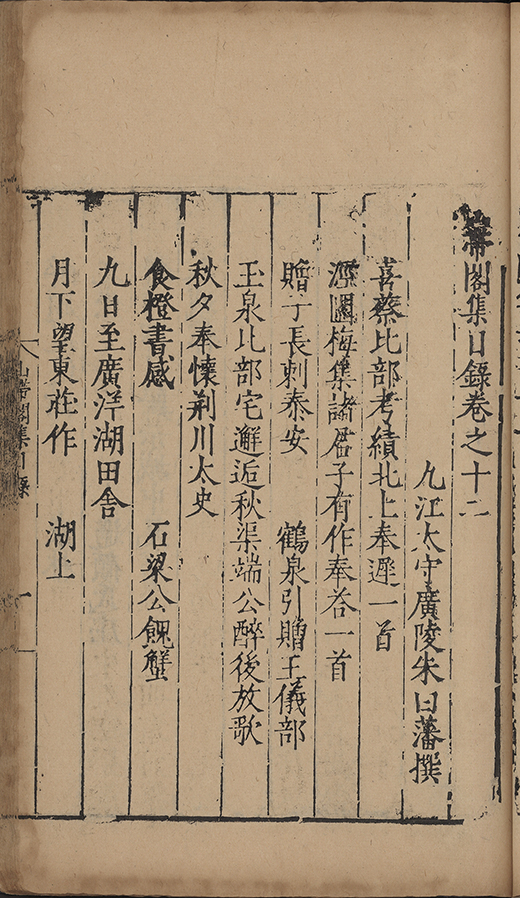 帶閣集目錄卷之十二
九江太守廣陵朱曰藩撰
喜蔡比部考績北上奉遲一首
濕園梅集諸君子有作奉荅一首
贈子長刺泰安 鶴泉引贈王儀部
玉泉比部宅邂逅秋渠端公醉後放歌
秋夕奉懷荊川太史
食橙書感 石梁公餽蟹
九日至廣洋湖田舍
月下望東莊作 湖上
山帶閣集目錄 一